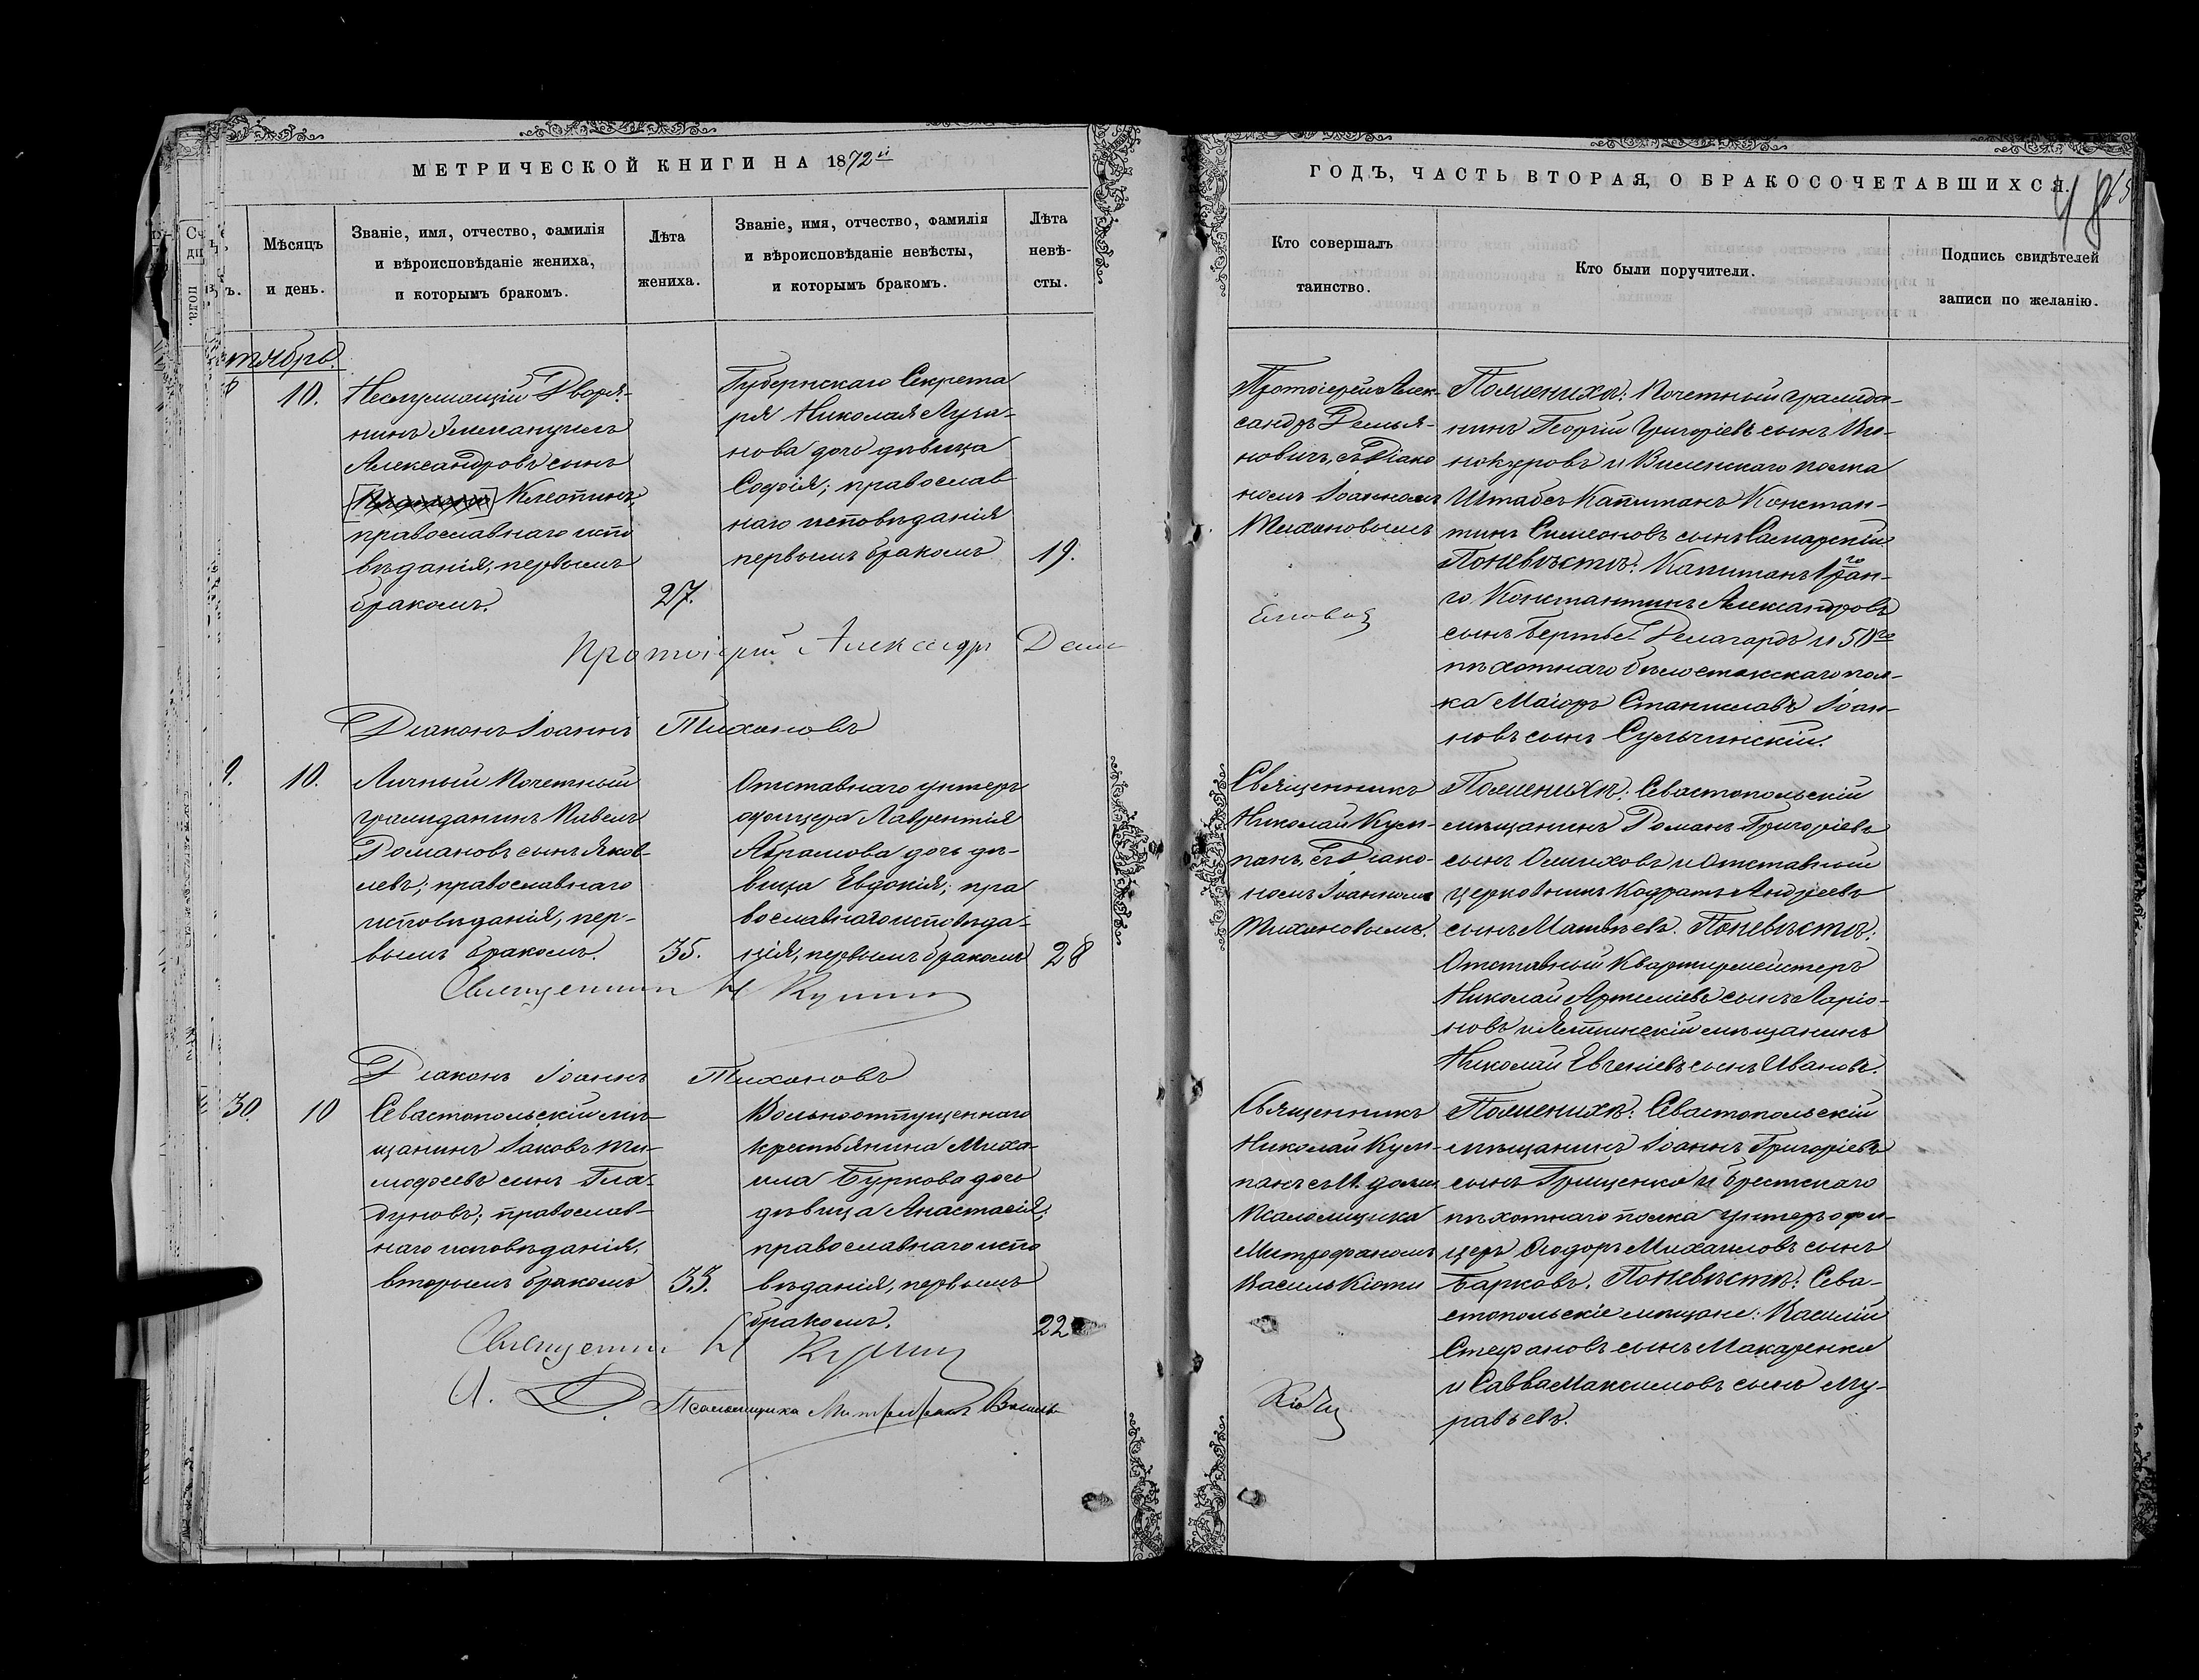 МЕТРИЧЕСКОЙ КНИГИ НА 1872й
ГОДЪ, ЧАСТЬ ВТОРАЯ, О БРАКОСОЧЕТАВШИХСЯ.
Мѣсяцъ
и день.
Званіе, имя, отчество, фамилія
и вѣроисповѣданіе жениха,
и которымъ бракомъ.
Лѣта
жениха.
Званіе, имя, отчество, фамилія
и вѣроисповѣданіе невѣсты,
и которымъ бракомъ.
Лѣта
невѣ-
сты.
Кто совершалъ
таинство.
Кто были поручители.
Подпись свидѣтелей
записи по желанію.
тября.
8
10.
Неслужащій Дворя-
нинъ Эммануилъ
Александровъ сынъ
Клеопинъ,
православнаго испо
вѣданія, первымъ
бракомъ.
27.
Губернскаго Секрета
ря Николая
дочь дѣвица
Софія; православ
наго исповѣданія
первымъ бракомъ
19.
Протоіерей Алек-
сандръ Демья-
новичъ, съ Діако
номъ Іоанномъ
Тихановымъ
По женихѣ: Почетный гражда-
нинъ Георгій Григоріевъ сынъ
и Виленскаго полка
Штабсъ Капитанъ Констан-
тинъ Симеоновъ сынъ Самарскій
По невѣстѣ: Капитанъ 1го ран-
га Константинъ Александровъ
сынъ Бертье-Делагардъ и 50го
пѣхотнаго бѣлостокскаго пол-
ка Маіоръ Станиславъ Іоан-
новъ сынъ Сульчинскій.
Протоіерей Александръ Демь
Діаконъ Іоаннъ Тихановъ
9.
10.
Личный Почетный
гражданинъ Павелъ
Романовъ сынъ Яков-
левъ; православнаго
исповѣданія, пер-
вымъ бракомъ.
35.
Отставнаго унтеръ
офицера Лаврентія
Абрамова дочь дѣ-
вица Евдокія; пра
вославнаго исповѣда-
нія, первымъ бракомъ
28
Священникъ
Николай Кум-
панъ, съ Діако-
номъ Іоанномъ
Тихановымъ.
По женихѣ: Севастопольскій
мѣщанинъ Романъ Григоріевъ
сынъ и Отставный
церковникъ Кодратъ Андреевъ
сынъ Матвѣевъ. По невѣстѣ:
Отставный Квартирмейстеръ
Николай Артеміевъ сынъ Ларіо-
новъ и Ялтинскій мѣщанинъ
Николай Евгеніевъ сынъ Ивановъ.
Священникъ Н Кумпа
Діаконъ Іоаннъ Тихановъ
30.
10
Севастопольскій мѣ-
щанинъ Іаковъ Ти-
мофеевъ сынъ Гла-
дуновъ; православ-
наго исповѣданія,
вторымъ бракомъ
33.
Вольноотпущеннаго
крестьянина Миха-
ила Буркова дочь
дѣвица Анастасія;
православнаго испо
вѣданія, первымъ
бракомъ.
22
Священникъ
Николай Кум-
панъ съ И. долж.
Псаломщика
Митрофаномъ
По женихѣ: Севастопольскій
мѣщанинъ Іоаннъ Григоріевъ
сынъ Грищенко и брестскаго
пѣхотнаго полка унтеръ офи-
церъ Ѳеодоръ Михаиловъ сынъ
Барковъ. По невѣстѣ: Сева-
стопольскіе мѣщане: Василій
Стефановъ сынъ Макаренко
и Савва Максимовъ сынъ Му-
равьевъ.
Священник Н Кумпа
И. Д. Псаломщика Митрофанъ